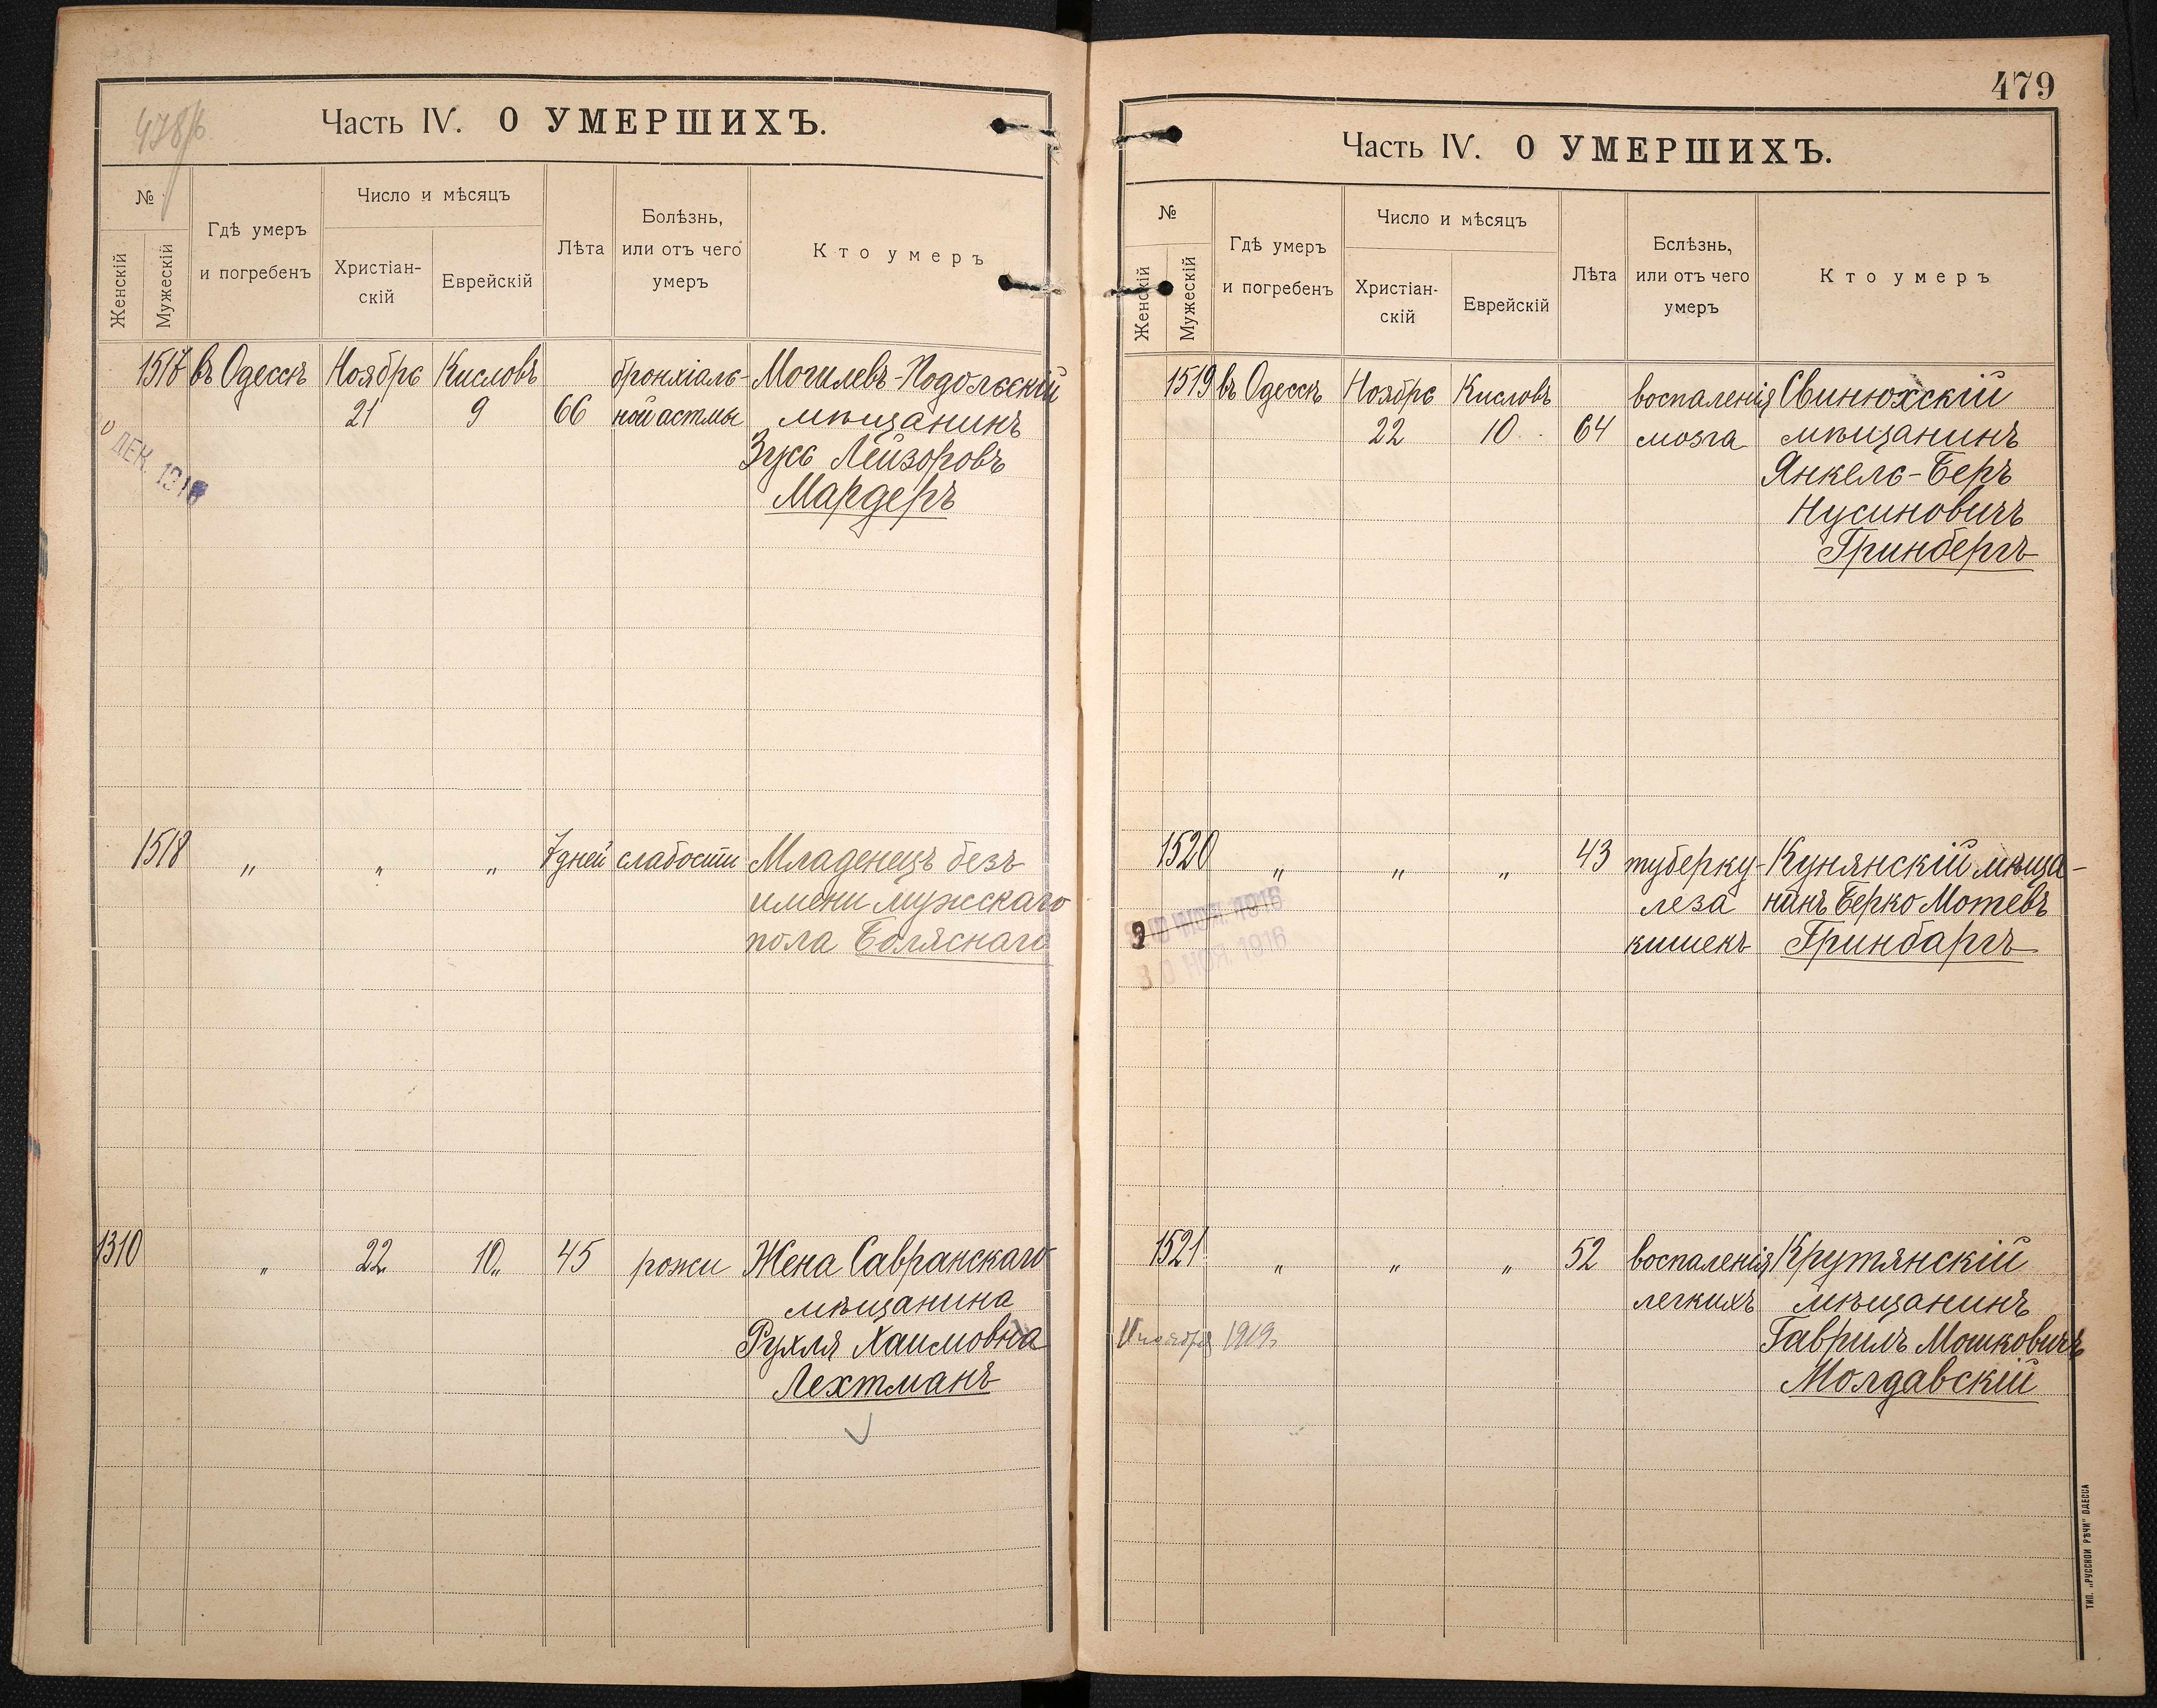 478/б.
Часть IV. О УМЕРШИХЪ.
№
Женскій
Мужескій
Гдѣ умеръ
и погребенъ
Число и мѣсяцъ
Христіан-
скій
Еврейскій
Лѣта
Болѣзнь,
или отъ чего
умеръ
Кто умеръ
1517 въ Одессѣ Ноябрь Кисловъ бронхіаль- Могилевъ-Подольскій
21 9 66 ной астмы мѣщанинъ
Зусь Лейзоровъ
Мардеръ
ДЕК. 1916
1518 " " " 7 дней слабости Младенецъ безъ
имени мужскаго
пола Боляснаго
1310 " 22 10 " 45 рожи Жена Савранскаго
мѣщанина
Рухля Хаимовна
Лехтманъ
479
Часть IV. О УМЕРШИХЪ.
№
Женскій
Мужескій
Гдѣ умеръ
и погребенъ
Число и мѣсяцъ
Христіан-
скій
Еврейскій
Лѣта
Бслѣзнь,
или отъ чего
умеръ
Кто умеръ
1519 въ Одессѣ Ноябрь Кисловъ воспаленія Свинюхскій
22 10 64 мозга мѣщанинъ
Янкель-Беръ
Нусиновичъ
Гринбергъ
1520 " " " 43 туберку- Кунянскій мѣща-
леза нинъ Берко Мотевъ
кишекъ Гринбаргъ
30 НОЯ. 1916
1521 " " " 52 воспаленія Крутянскій
легкихъ мѣщанинъ
Гаврилъ Мошковичъ
Молдавскій
1919.
ТИП. „РУССКОЙ РѢЧИ" ОДЕССА